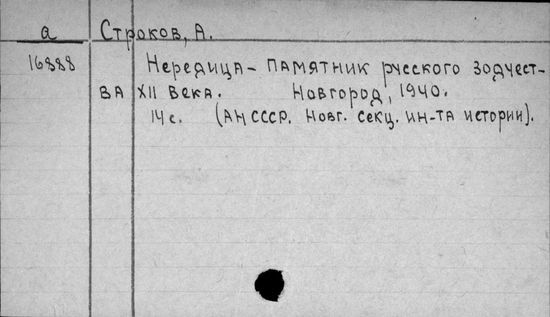 а Строков, А.
16888 Нередица – памятник рчсского зодчест-
ва XII века. Новгород, 1940.
14 с. (АН СССР. Новг. секц. ин-та истории).